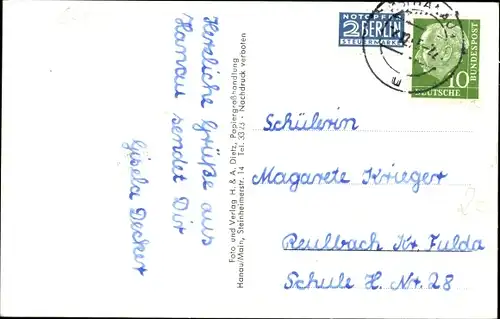 Herzliche Grüße aus
Hanau sendet Dir
Gisela Decker
Foto und Verlag H. & A. Dietz, Papiergroßhandlung
Hanau/Main, Steinheimerstr. 14 Tel. 3323 · Nachdruck verboten
NOTOPFER
2 BERLIN
STEUERMARKE
DEUTSCHE
BUNDESPOST
10
Schülerin
Magarete Krieger
Reulbach Kr. Fulda
Schule H. Nr. 28